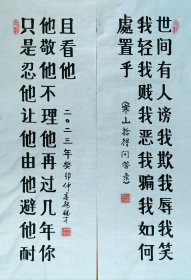 世间有人谤我欺我辱我笑
我轻我贱我恶我骗我如何
處置乎
(寒山拾得问答录)
只是忍他让他由他避他耐
他敬他不理他再过几年你
且看他
二〇二三年癸卯仲春